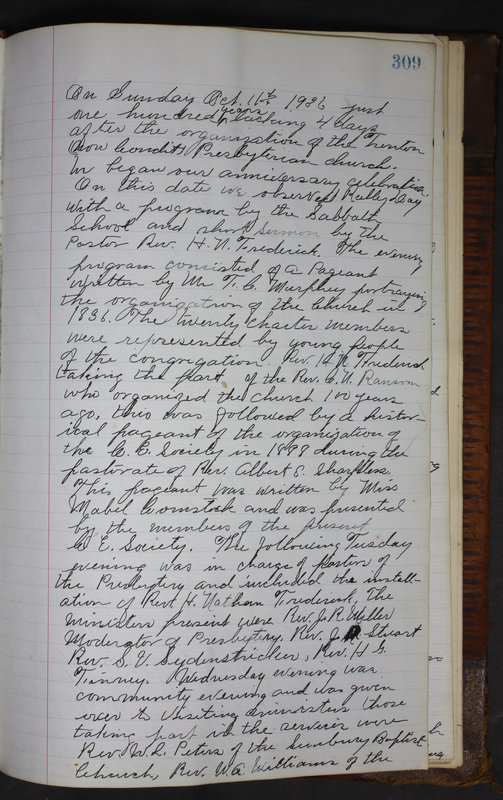 309
On Sunday Oct. 11th 1936 just
one hundred years lacking 4 days
after the organization of the Trenton
now Condit Presbyterian church.
We began our anniversary celebration.
On this date we observed Rally Day
with a program by the Sabbath
School and short sermon by the
Pastor Rev. H. N. Frederick. The evening
program consisted of a Pageant
written by Mr. T. C. Murphey portraying
the organization of the Church in
1836. The twenty charter members
were represented by young people
of the congregation. Rev. H N Frederick
taking the part of the Rev. C. N. Ransom
who organized the church 100 years
ago, this was followed by a histor-
ical pageant of the organization of
the C. E. Society in 1888 during the
pastorate of Rev. Albert E. Sharpless.
This pageant was written by Miss
Mabel Comstock and was presented
by the members of the present
C. E. Society. The following Tuesday
evening was in charge of pastor of
the Presbytery and included the install-
ation of Rev. H. Nathan Frederick, The
ministers present were Rev. J. R. Miller
Moderator of Presbytery, Rev. J. Stuart
Rev. S. V. Sydenstricker, Rev. H G
Tinney. Wednesday evening was
community evening and was given
over to visiting ministers those
taking part in the services were
Rev. W. L. Peters of the Sunbury Baptist
Church, Rev. W. A. Williams of the